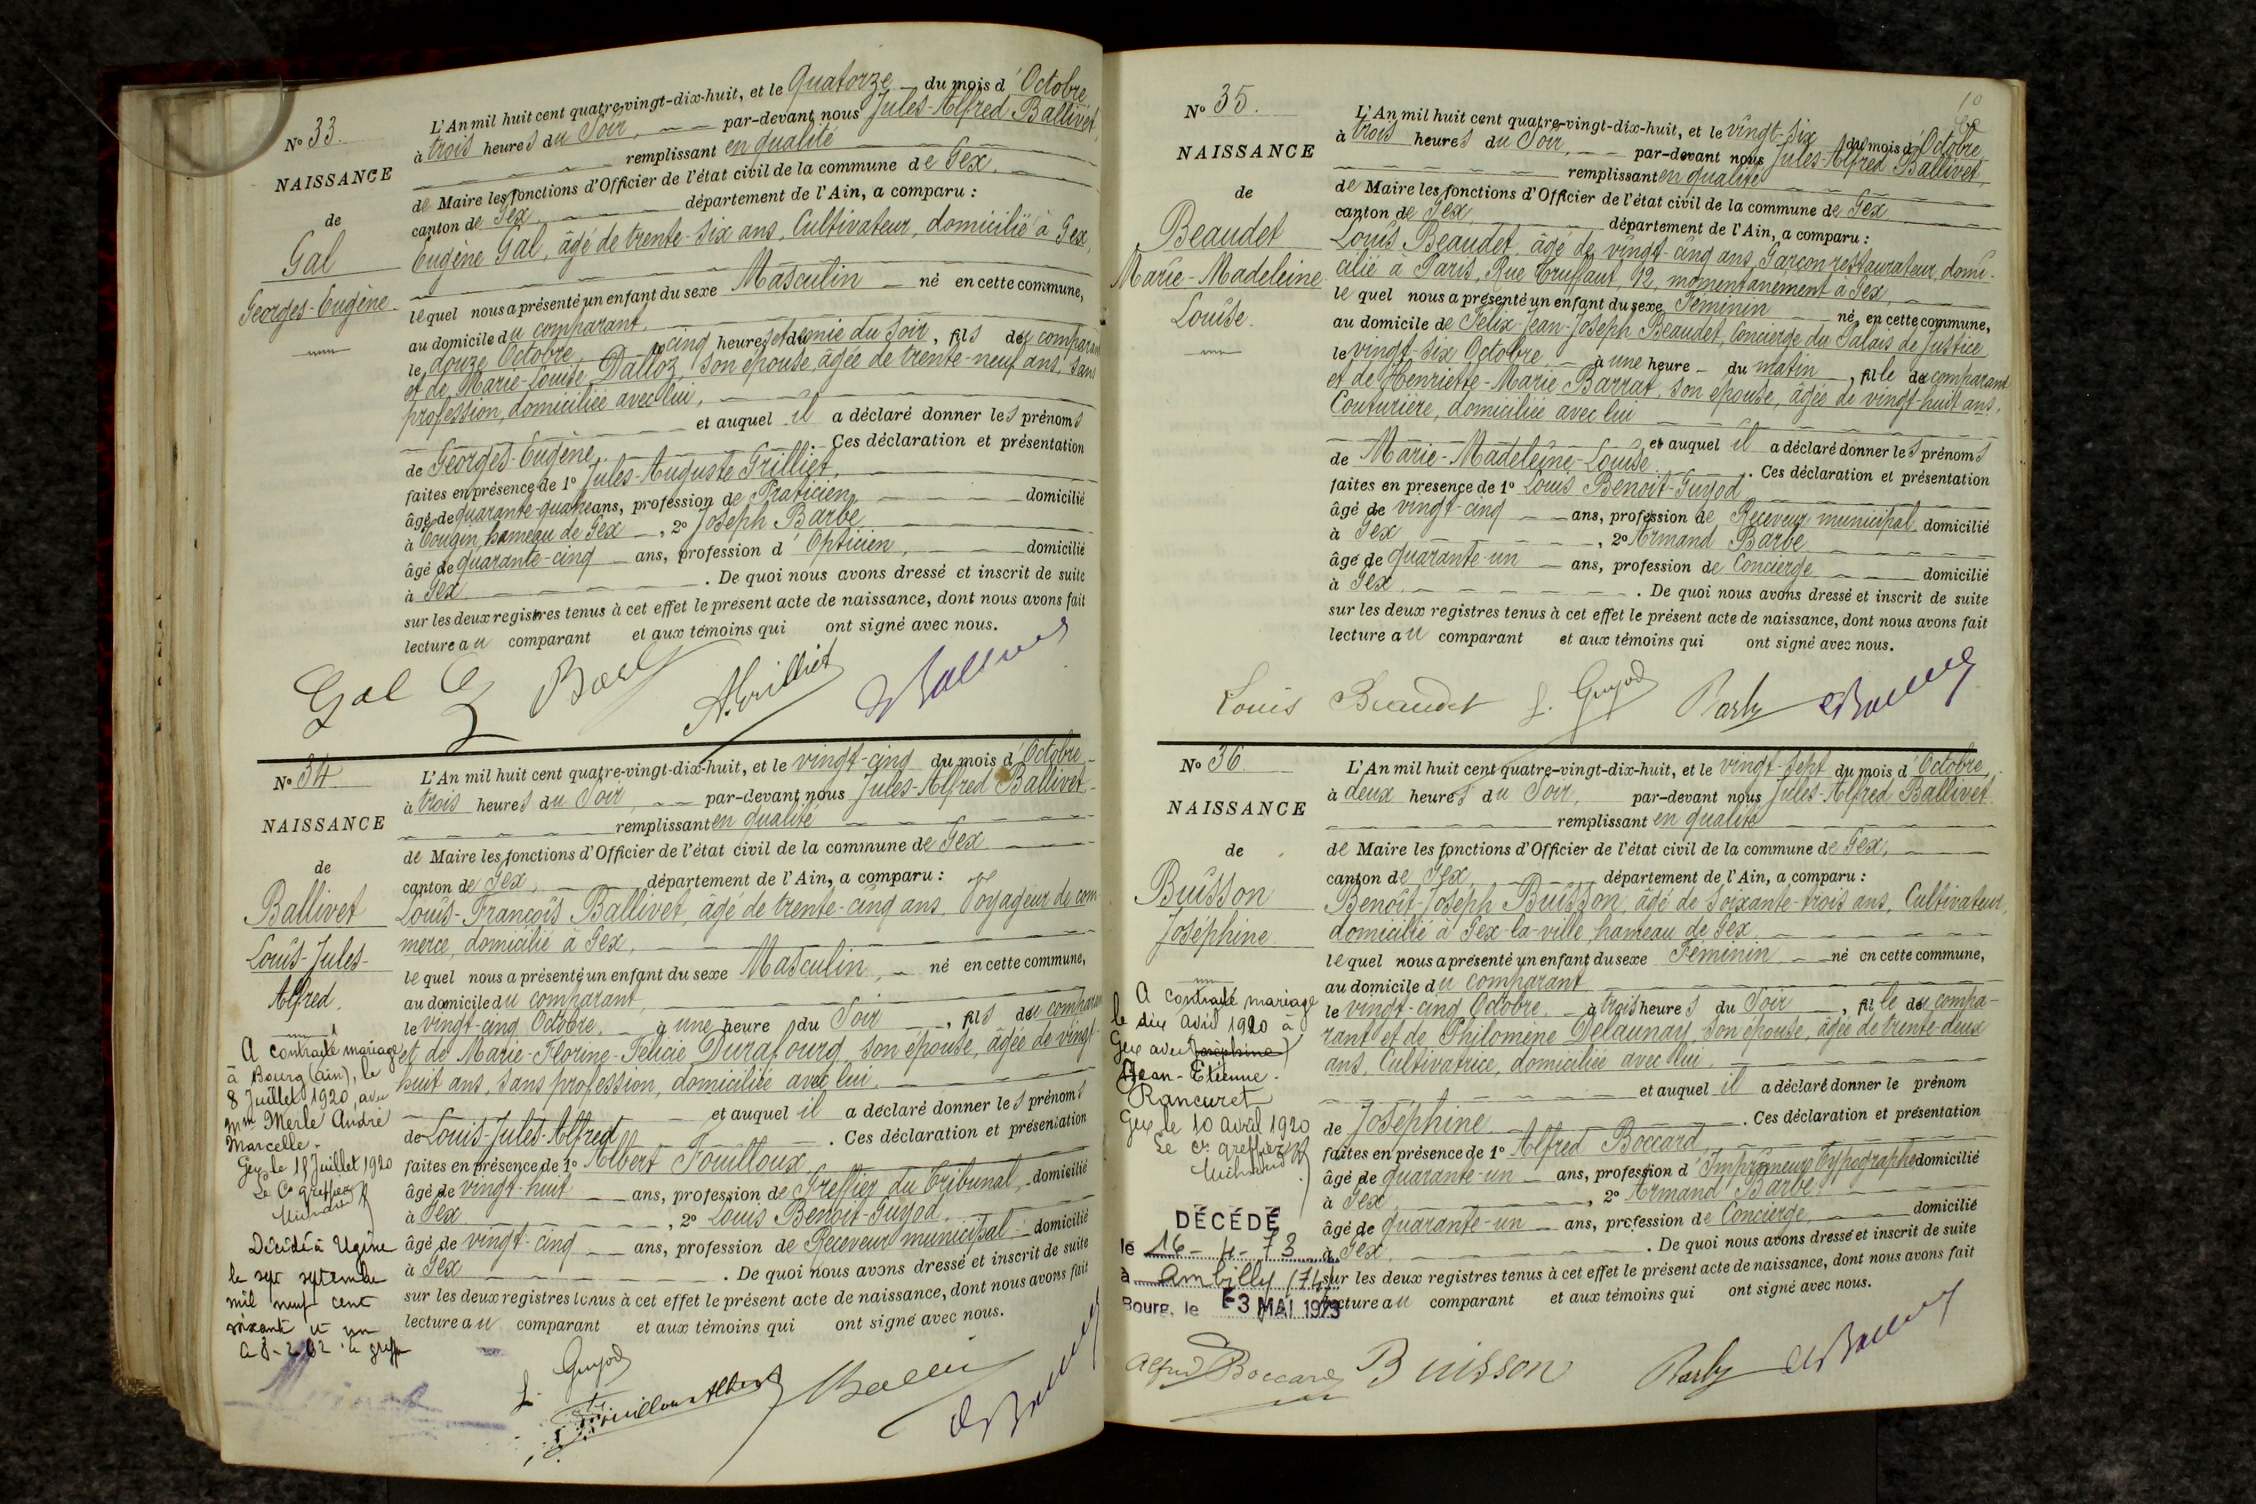 No 33.
NAISSANCE
de
Gal
Georges-Eugène
L'An mil huit cent quatre-vingt-dix-huit, et le Quatorze du mois d'Octobre
à trois heures du Soir, par-devant nous Jules-Alfred Ballivet,
remplissant en qualité
de Maire les fonctions d'Officier de l'état civil de la commune de Gex,
canton de Gex, département de l'Ain, a comparu :
Eugène Gal, âgé de trente-six ans, Cultivateur, domicilié à Gex,
lequel nous a présenté un enfant du sexe Masculin né en cette commune,
au domicile du comparant,
le douze Octobre, à cinq heures et demie du Soir, fils du comparant
et de Marie-Louise Dalloz, son épouse âgée de trente-neuf ans, sans
profession, domiciliée avec lui,
et auquel il a déclaré donner les prénoms
de Georges-Eugène. Ces déclaration et présentation
faites en présence de 1º Jules-Auguste Grilliet,
âgé de quarante-quatre ans, profession de Praticien, domicilié
à Tougin, hameau de Gex, 2º Joseph Barbe
âgé de quarante-cinq ans, profession d'Opticien, domicilié
à Gex. De quoi nous avons dressé et inscrit de suite
sur les deux registres tenus à cet effet le présent acte de naissance, dont nous avons fait
lecture au comparant et aux témoins qui ont signé avec nous.
Gal E A. Grilliet
No 34
NAISSANCE
de
Ballivet
Louis-Jules-
Alfred.
A contracté mariage
à Bourg (ain), le
8 Juillet 1920, avec
Mme Merle André
Marcelle.
Gex le 18 Juillet 1920
Le Cs greffier
Décédé à Ugine
le sept septembre
mil neuf cent
soixante et un
L'An mil huit cent quatre-vingt-dix-huit, et le vingt-cinq du mois d'Octobre
à trois heures du Soir, par-devant nous Jules-Alfred Ballivet
remplissant en qualité
de Maire les fonctions d'Officier de l'état civil de la commune de Gex
canton de Gex, département de l'Ain, a comparu :
Louis-François Ballivet, âgé de trente-cinq ans, Voyageur de com
merce, domicilié à Gex,
lequel nous a présenté un enfant du sexe Masculin, né en cette commune,
au domicile du comparant,
le vingt-cinq Octobre, à une heure du Soir, fils du comparant
et de Marie-Florine-Félicie Durafourg, son épouse, âgée de vingt-
huit ans, sans profession, domiciliée avec lui,
et auquel il a déclaré donner les prénoms
de Louis-Jules-Alfred. Ces déclaration et présentation
faites en présence de 1º Albert Fouilloux,
âgé de vingt-huit ans, profession de Greffier du Tribunal, domicilié
à Gex, 2º Louis Benoit-Guyod,
âgé de vingt-cinq ans, profession de Receveur municipal domicilié
à Gex. De quoi nous avons dressé et inscrit de suite
sur les deux registres tenus à cet effet le présent acte de naissance, dont nous avons fait
lecture au comparant et aux témoins qui ont signé avec nous.
L. Guyod
Fouilloux Albert
10
No 35.
NAISSANCE
de
Beaudet
Marie-Madeleine
Louise.
L'An mil huit cent quatre-vingt-dix-huit, et le vingt-six du mois d'Octobre
à trois heures du Soir, par-devant nous Jules-Alfred Ballivet,
remplissant en qualité
de Maire les fonctions d'Officier de l'état civil de la commune de Gex
canton de Gex département de l'Ain, a comparu :
Louis Beaudet, âgé de vingt-cinq ans, Garçon restaurateur, domi-
cilié à Paris, Rue Truffaut, 92, momentanément à Gex,
lequel nous a présenté un enfant du sexe Féminin né, en cette commune,
au domicile de Félix-Jean-Joseph Beaudet, Concierge du Palais de Justice
le vingt-six Octobre à une heure du matin, fille du comparant
et de Henriette-Marie Barrat, son épouse, âgée de vingt-huit ans,
Couturière, domiciliée avec lui
et auquel il a déclaré donner les prénoms
de Marie-Madeleine-Louise. Ces déclaration et présentation
faites en présence de 1º Louis Benoit-Guyod
âgé de vingt-cinq ans, profession de Receveur municipal domicilié
à Gex, 2º Armand Barbe
âgé de quarante-un ans, profession de Concierge domicilié
à Gex. De quoi nous avons dressé et inscrit de suite
sur les deux registres tenus à cet effet le présent acte de naissance, dont nous avons fait
lecture au comparant et aux témoins qui ont signé avec nous.
Louis Beaudet L. Guyod
No 36
NAISSANCE
de
Buisson
Joséphine
A contracté mariage
le dix avril 1920 à
Gex avec Joséphine
Jean-Etienne-
Rancuret
Gex le 10 avril 1920
Le Cs greffier
DÉCÉDÉ
le 16-4-73
à Ambilly (74)
Bourg, le -3 MAI 1973
L'An mil huit cent quatre-vingt-dix-huit, et le vingt-sept du mois d'Octobre,
à deux heures du Soir, par-devant nous Jules-Alfred Ballivet
remplissant en qualité
de Maire les fonctions d'Officier de l'état civil de la commune de Gex,
canton de Gex département de l'Ain, a comparu :
Benoit-Joseph Buisson, âgé de Soixante-trois ans, Cultivateur,
domicilié à Gex-la-ville, hameau de Gex
lequel nous a présenté un enfant du sexe Féminin né en cette commune,
au domicile du comparant
le vingt-cinq Octobre à trois heures du Soir, fille du compa-
rant et de Philomène Delaunay, son épouse, âgée de trente-deux
ans, Cultivatrice, domiciliée avec lui
et auquel il a déclaré donner le prénom
de Joséphine. Ces déclaration et présentation
faites en présence de 1º Alfred Boccard
âgé de quarante-un ans, profession d'Imprimeur Typographe domicilié
à Gex, 2º Armand Barbe
âgé de quarante-un ans, profession de Concierge domicilié
à Gex. De quoi nous avons dressé et inscrit de suite
sur les deux registres tenus à cet effet le présent acte de naissance, dont nous avons fait
lecture au comparant et aux témoins qui ont signé avec nous.
Alfred Boccard Buisson